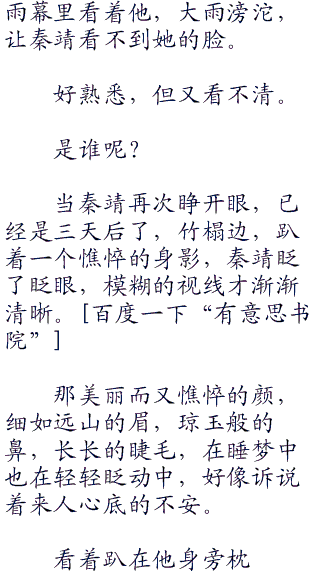 雨幕里看着他，大雨滂沱，
让秦靖看不到她的脸。
好熟悉，但又看不清。
是谁呢？
当秦靖再次睁开眼，已
经是三天后了，竹榻边，趴
着一个憔悴的身影，秦靖眨
了眨眼，模糊的视线才渐渐
清晰。[百度一下“有意思书
院”]
那美丽而又憔悴的颜，
细如远山的眉，琼玉般的
鼻，长长的睫毛，在睡梦中
也在轻轻眨动中，好像诉说
着来人心底的不安。
看着趴在他身旁枕